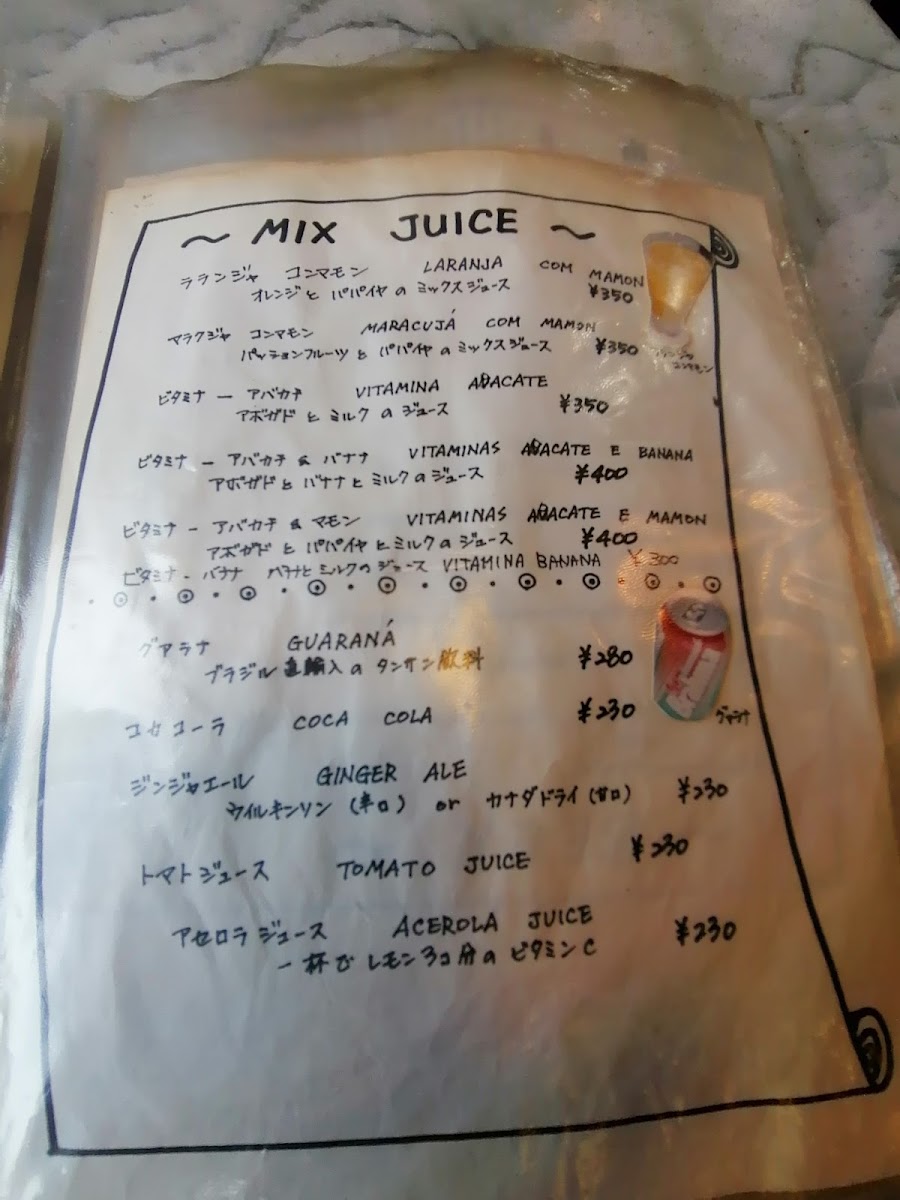 ~ MIX JUICE ~
ラランジャ コンマモン LARANJA COM MAMON
オレンジと パパイヤの ミックスジュース ¥350
マラクジャ コンマモン MARACUJÁ COM MAMON
パッションフルーツと パパイヤのミックスジュース ¥350
コンマモン
ビタミナ - アバカチ VITAMINA ABACATE
アボガドとミルクのジュース ¥350
ビタミナ - アバカチ & バナナ VITAMINAS ABACATE E BANANA
アボガドとバナナとミルクのジュース ¥400
ビタミナ - アバカチ & マモン VITAMINAS ABACATE E MAMON
アボガドとパパイヤとミルクのジュース ¥400
ビタミナ - バナナ バナナとミルクのジュース VITAMINA BANANA ¥300
グアラナ GUARANÁ
ブラジル直輸入のタンサン飲料 ¥280
グァラナ
コカコーラ COCA COLA ¥230
ジンジャエール GINGER ALE
ウイルキンソン (辛口) or カナダドライ (甘口) ¥230
トマトジュース TOMATO JUICE ¥230
アセロラジュース ACEROLA JUICE ¥230
一杯でレモン3コ分のビタミンC